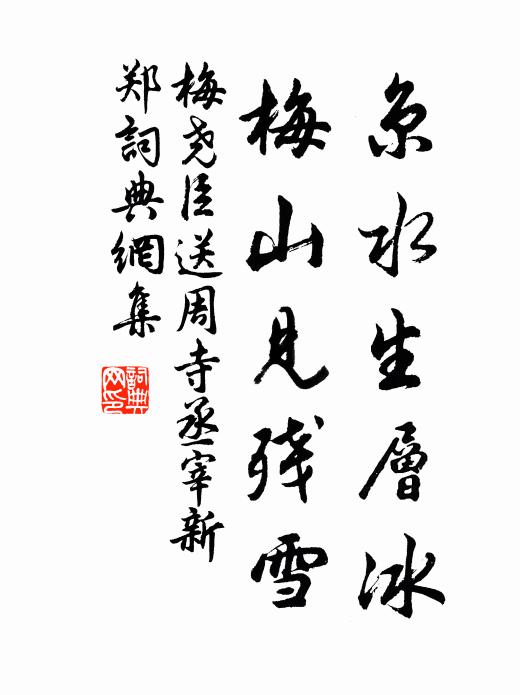 京水生層冰
梅山見残雪
梅尧臣送周寺丞宰新
郑詞典網集
詞典
网印